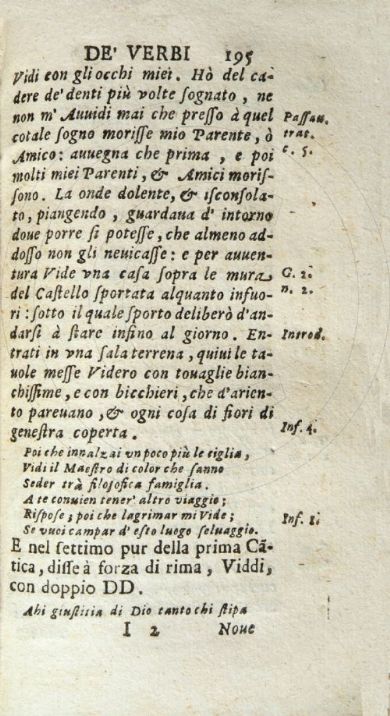 DE' VERBI 195
Vidi con gli occhi miei. Hò del ca-
dere de' denti più volte ſognato, ne
non m' Auuidi mai che preſſo à quel Paſſau.
cotale ſogno moriſſe mio Parente, ò trat.
Amico: auuegna che prima, e poi c. 5.
molti miei Parenti, & Amici moriſ-
ſono. La onde dolente, & iſconſola-
to, piangendo, guardaua d' intorno
doue porre ſi poteſſe, che almeno ad-
doſſo non gli neuicaſſe: e per auuen-
tura Vide vna caſa ſopra le mura G. 2.
del Caſtello ſportata alquanto infuo- n. 2.
ri: ſotto il quale ſporto deliberò d'an-
darſi à ſtare inſino al giorno. En- Introd.
trati in vna ſala terrena, quiui le ta-
uole meſſe Videro con touaglie bian-
chiſſime, e con bicchieri, che d'arien-
to pareuano, & ogni coſa di fiori di
geneſtra coperta. Inf. 4.
Poi che innalzai vn poco più le ciglia,
Vidi il Maeſtro di color che ſanno
Seder trà filoſofica famiglia.
A te conuien tener' altro viaggio;
Riſpoſe; poi che lagrimar mi Vide; Inf. 1.
Se vuoi campar d' eſto luogo ſeluaggio.
E nel ſettimo pur della prima Cã-
tica, diſſe à forza di rima, Viddi,
con doppio DD.
Ahi giuſtitia di Dio tanto chi ſtipa
I 2 Noue